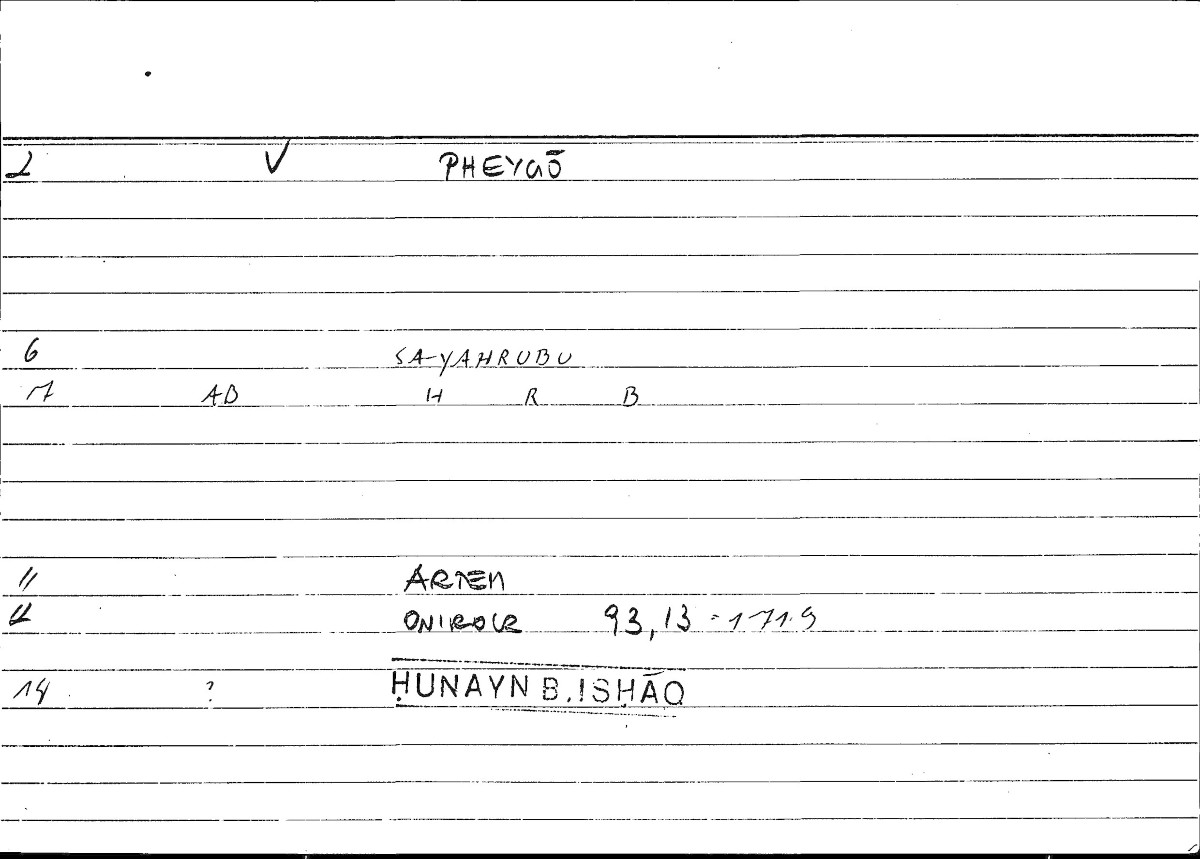 2 V PHEYGŌ
6 SA-YAHRUBU
7 AB H R B
11 ARTEM
12 ONIROCR 93,13 = 171.9
14 ? ḤUNAYN B. ISḤĀQ